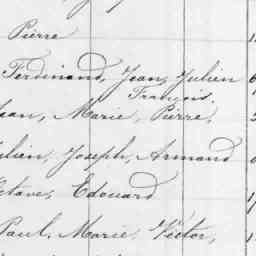 Pierre
Ferdinand, Jean, Julien
François.
Jean, Marie, Pierre,
Julien, Joseph, Armand
Octave, Edouard
Paul, Marie, Victor,